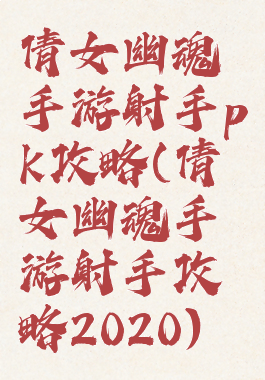 倩女幽魂
手游射手p
k攻略(倩
女幽魂手
游射手攻
略2020)